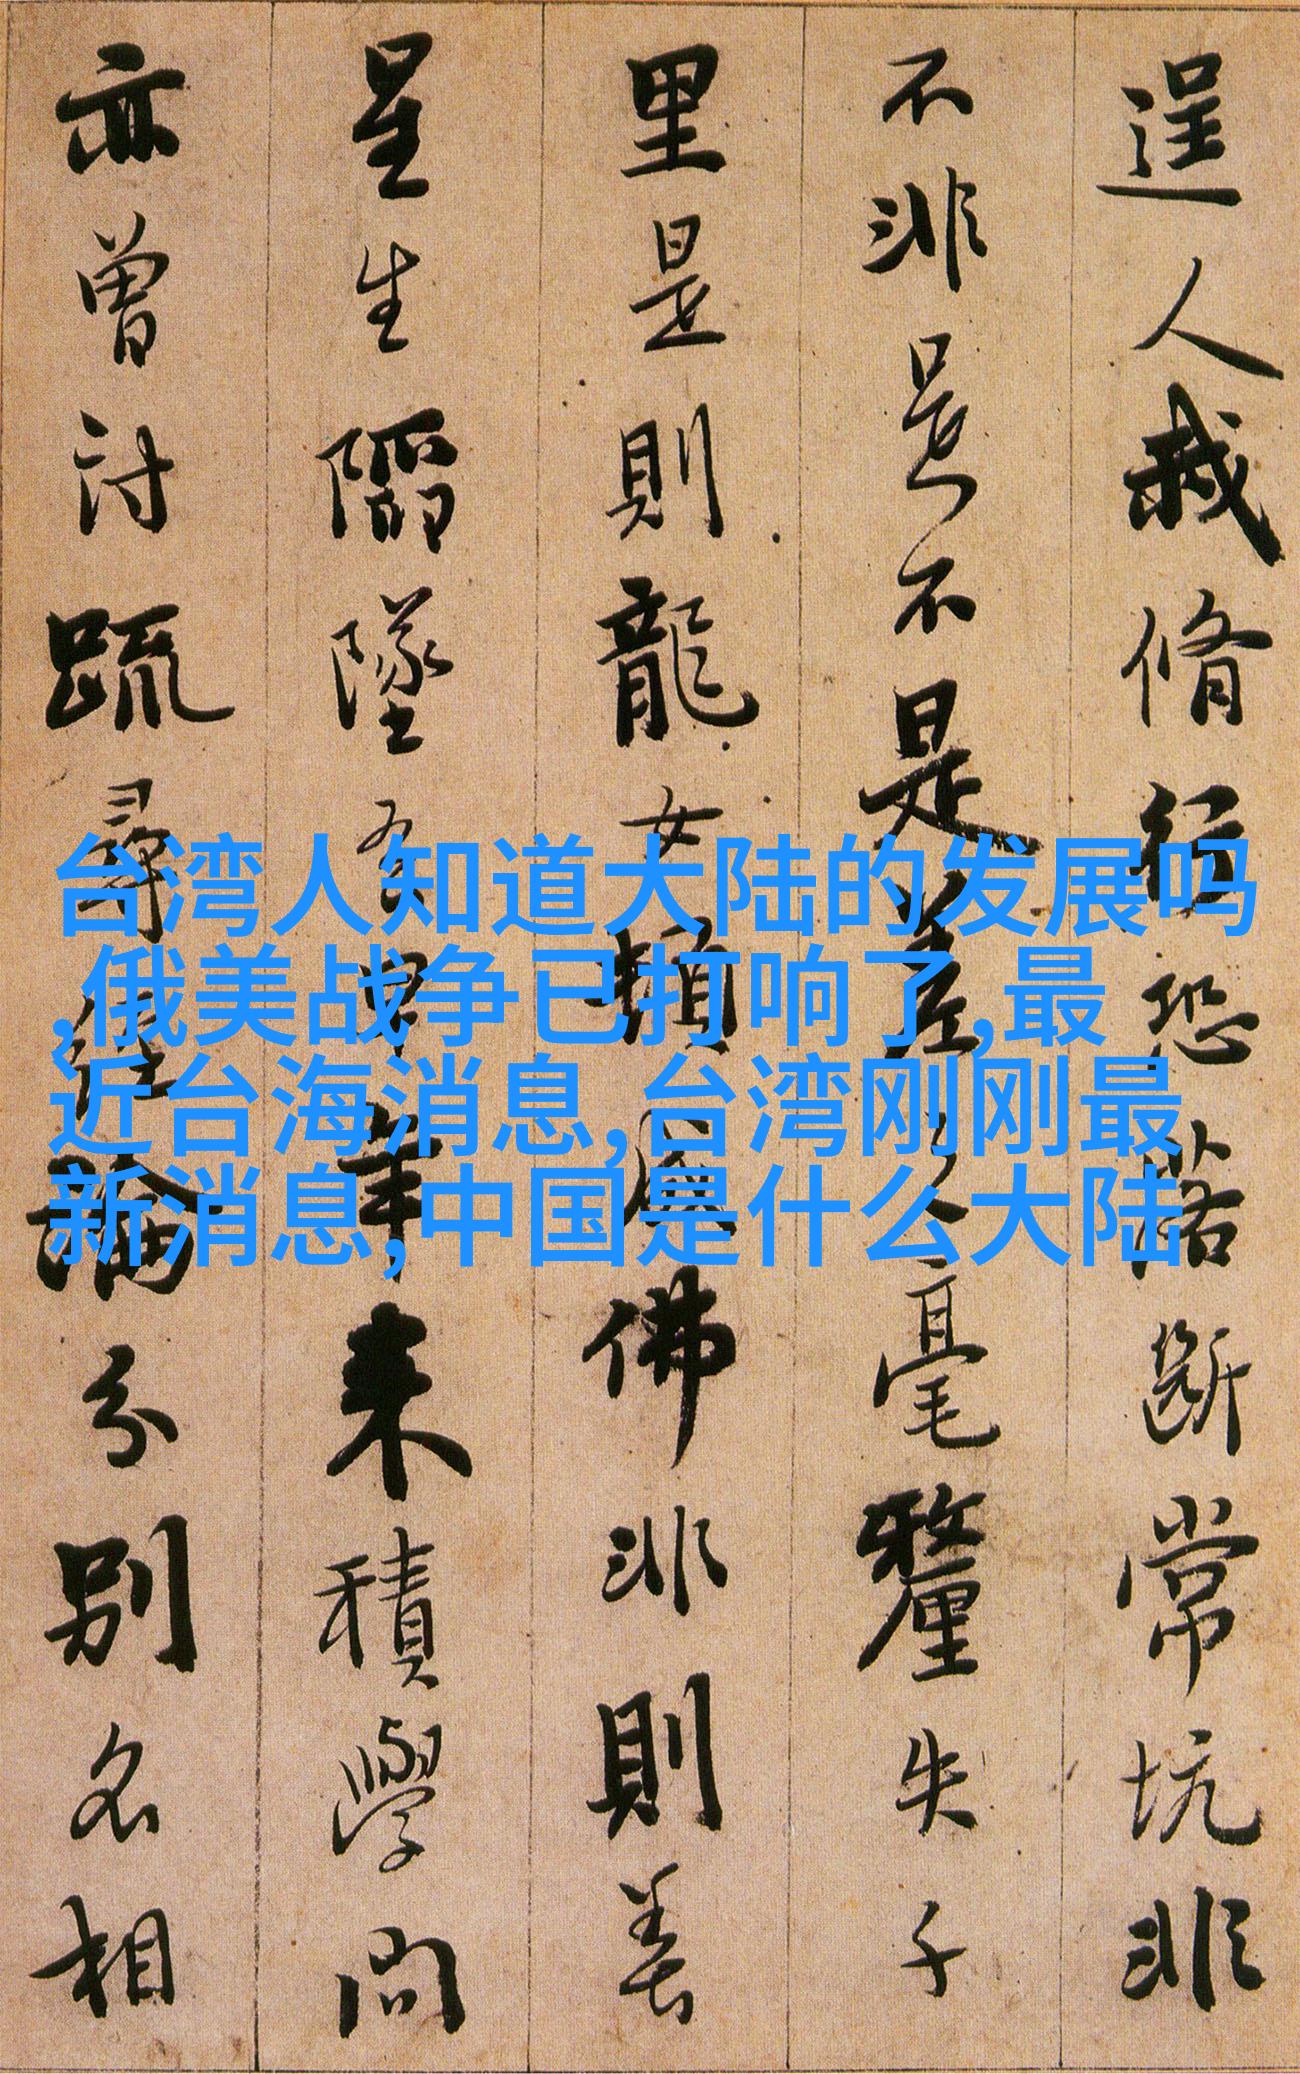 逞人我脩行恐落斷常坑非
不非是不是差之毫釐失千
里是則龍女頓成佛非則善
星生陷墜吾早年來積學問
亦曾討疏尋經論分別名相
台湾人知道大陆的发展吗
,俄美战争已打响了,最
近台海消息,台湾刚刚最
新消息,中国是什么大陆